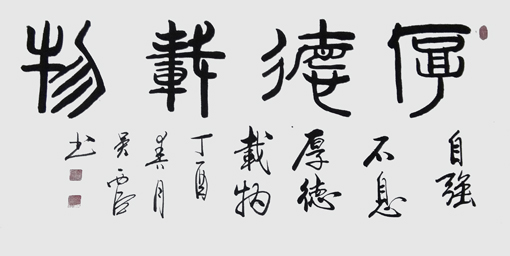 厚德載物
自強
不息
厚德
載物
丁酉
春月
吳霞
書